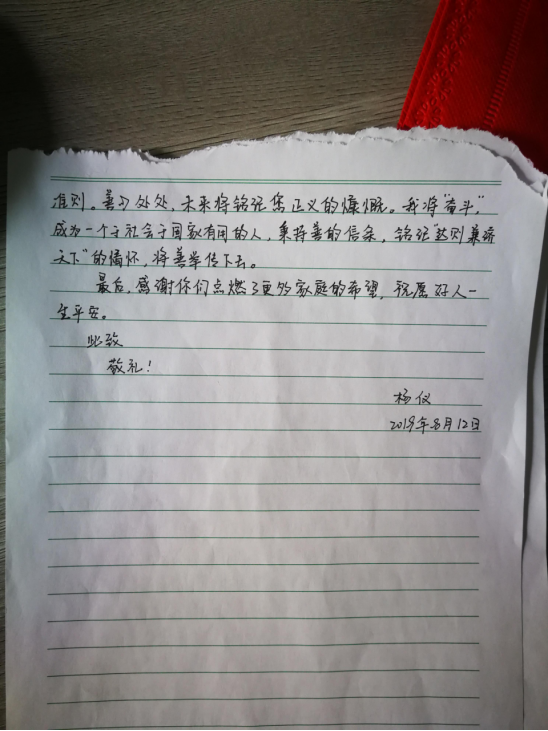 准则。善习处处，未来将铭记您正义的慷慨。我将“奋斗”，
成为一个于社会于国家有用的人，秉持善的信条，铭记“达则兼济
天下”的情怀，将善举传下去。
最后，感谢你们点燃了更多家庭的希望，祝愿好人一
生平安。
此致
敬礼！
杨仪
2019年8月12日